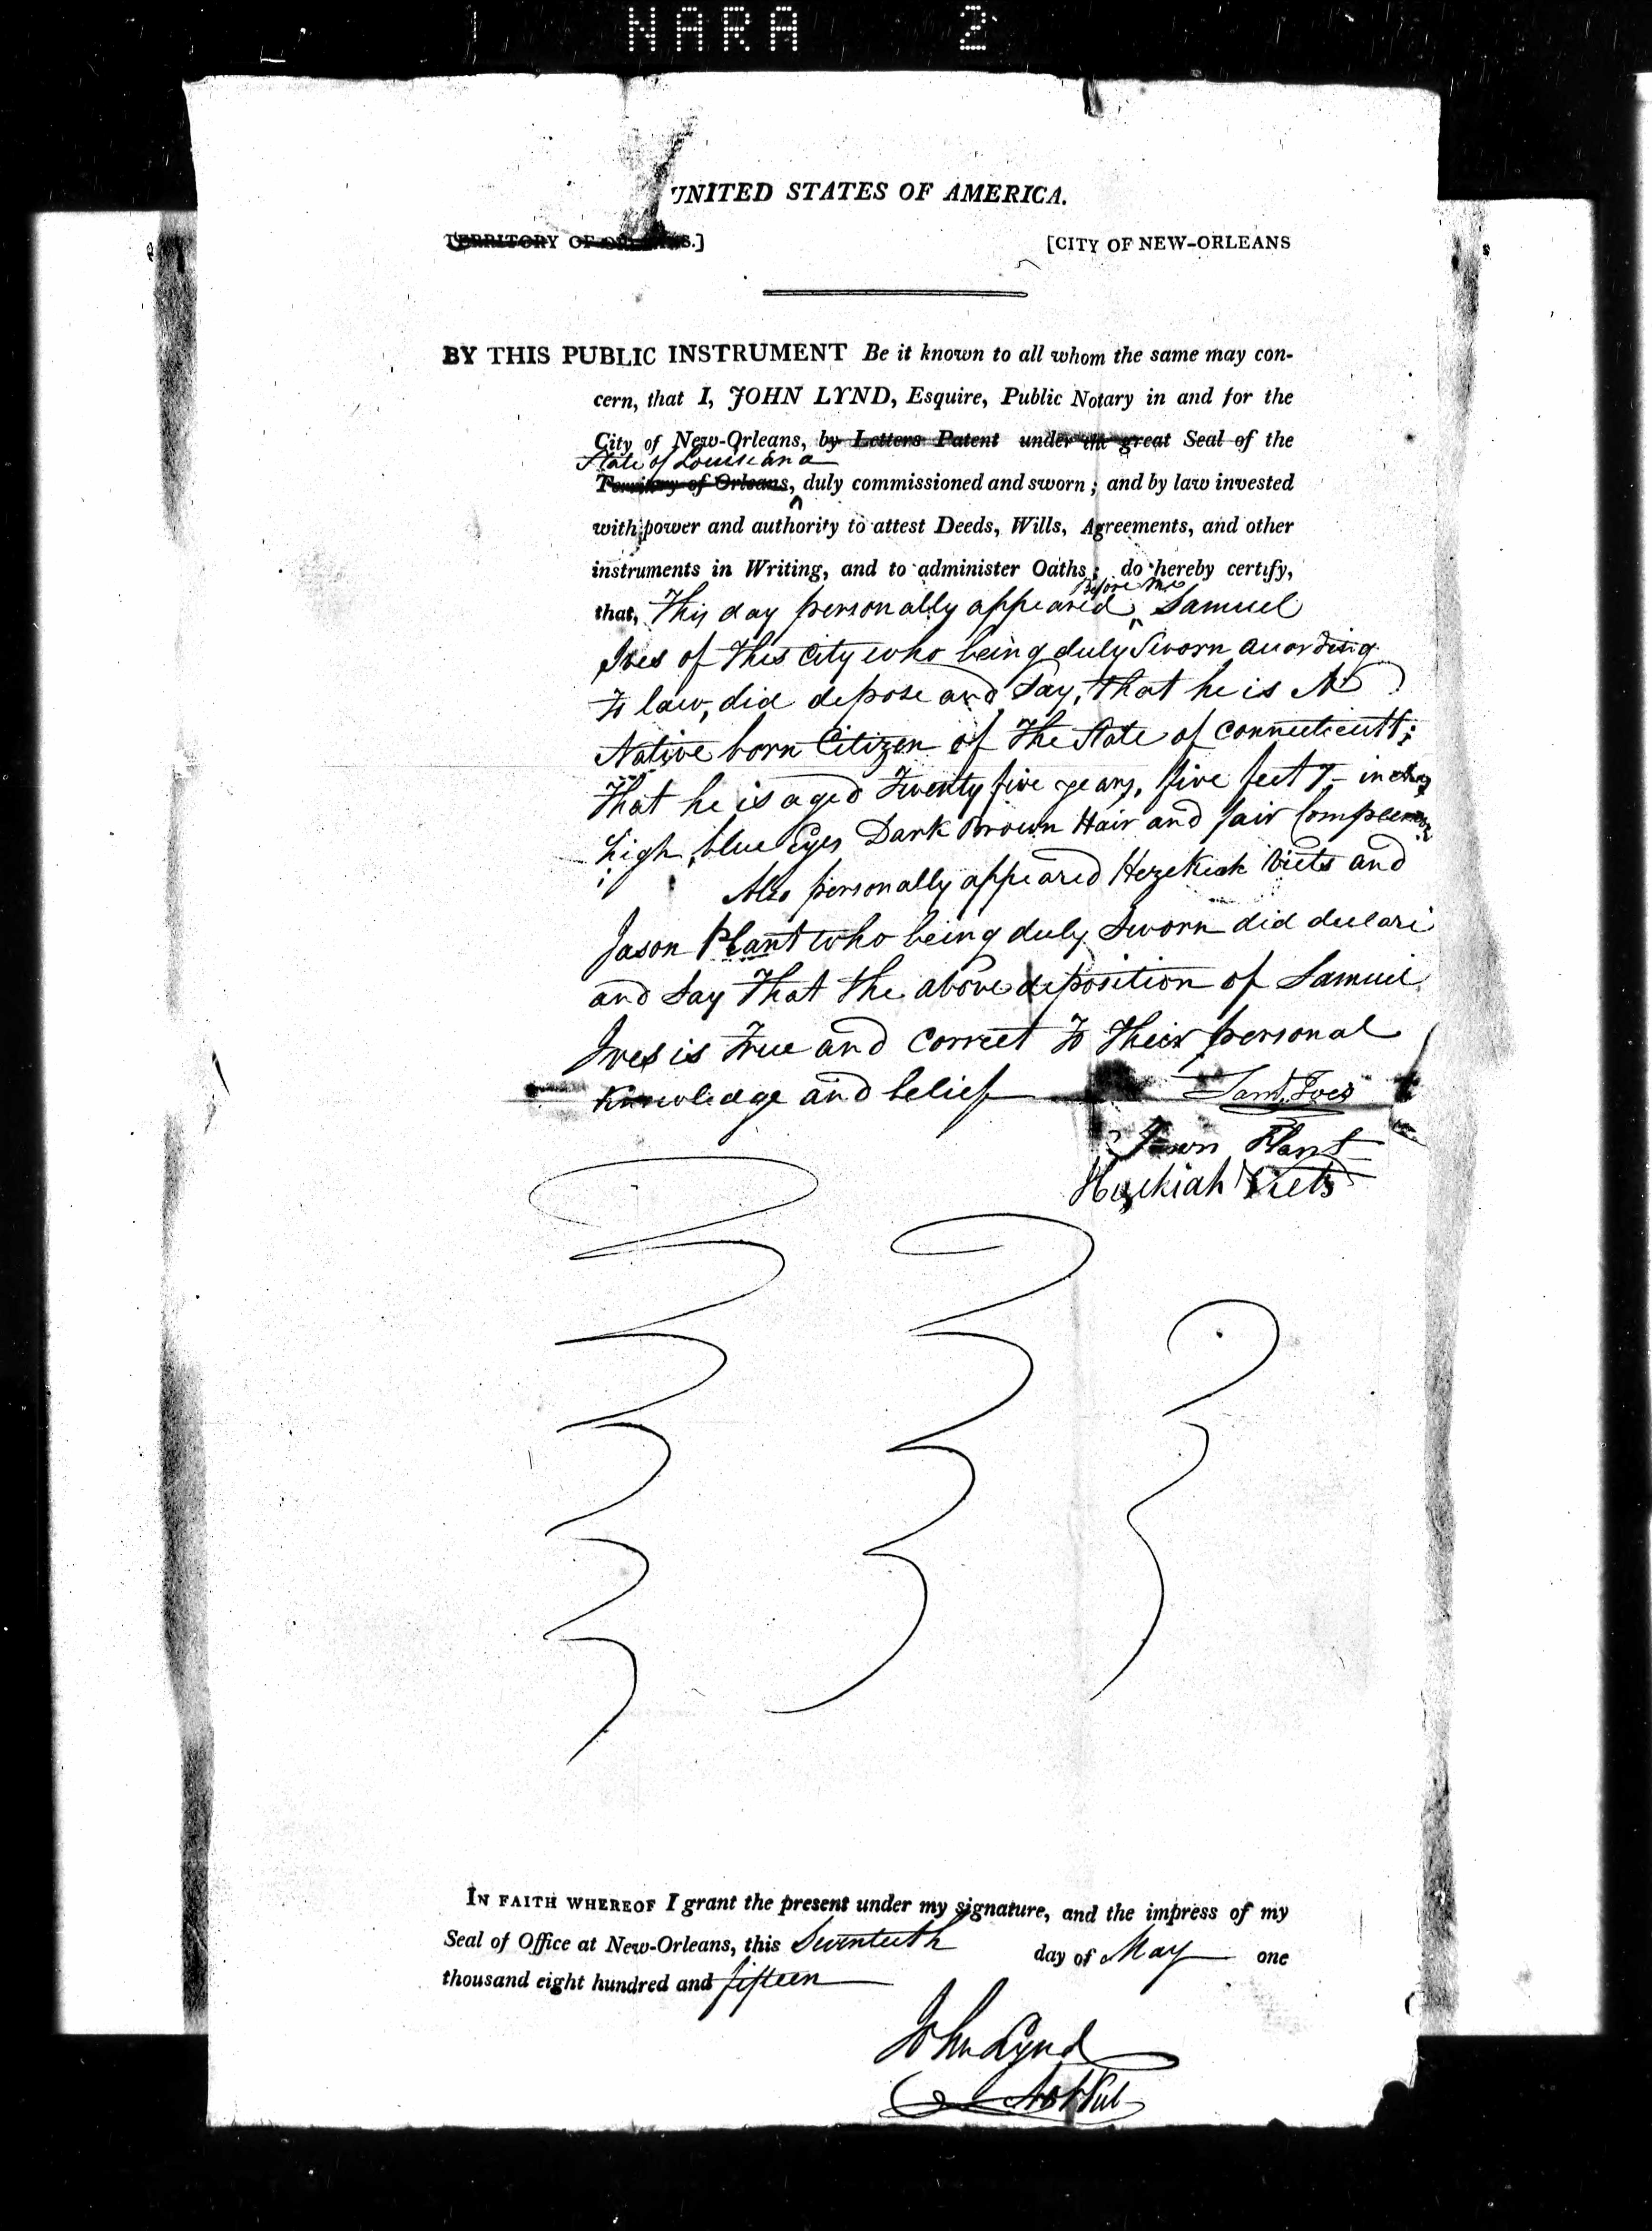 NARA 2
UNITED STATES OF AMERICA.
TERRITORY OF ORLEANS.] [CITY OF NEW-ORLEANS
BY THIS PUBLIC INSTRUMENT Be it known to all whom the same may con-
cern, that I, JOHN LYND, Esquire, Public Notary in and for the
City of New-Orleans, by Letters Patent under the great Seal of the
State of Louisiana
Territory of Orleans, duly commissioned and sworn; and by law invested
with power and authority to attest Deeds, Wills, Agreements, and other
instruments in Writing, and to administer Oaths; do hereby certify,
before me
that, This day personally appeared Samuel
Ives of this City who being duly Sworn according
to law, did depose and Say, that he is A
Native born Citizen of the State of Connecticutt;
That he is aged Twenty five years, five feet 7 inches
high, blue Eyes Dark Brown Hair and fair Complexion
Also personally appeared Hezekiah Viets and
Jason Plant who being duly Sworn did declare
and Say That the above deposition of Samuel
Ives is True and Correct to their personal
Knowledge and belief
Saml. Ives
Jason Plant
Hezekiah Viets
IN FAITH WHEREOF I grant the present under my signature, and the impress of my
Seal of Office at New-Orleans, this day of May one
thousand eight hundred and fifteen
John Lynd
Not Pub